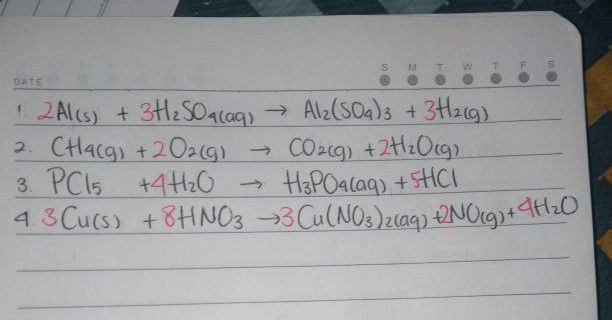 S M T W T F S
DATE
1 2Al(s) + 3H₂SO₄(aq) → Al₂(SO₄)₃ + 3H₂(g)
2. CH₄(g) + 2O₂(g) → CO₂(g) + 2H₂O(g)
3. PCl₅ + 4H₂O → H₃PO₄(aq) + 5HCl
4. 3Cu(s) + 8HNO₃ → 3Cu(NO₃)₂(aq) + 2NO(g) + 4H₂O